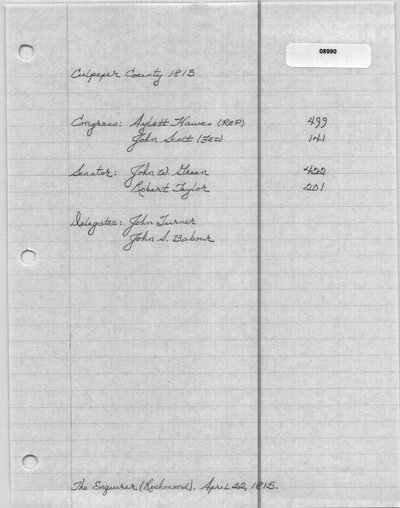 08990
Culpeper County 1815
Congress: Aylett Hawes (REP) 499
John Scott (FED) 141
Senator: John W. Green 422
Robert Taylor 201
Delegates: John Turner
John S. Babour
The Enquirer (Richmond). April 22, 1815.